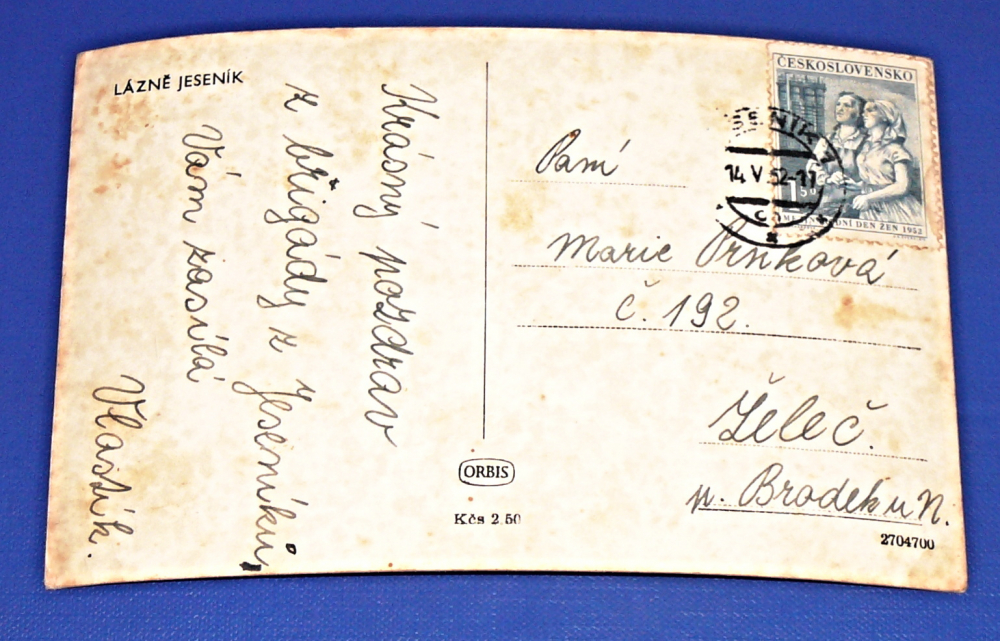 LÁZNĚ JESENÍK
Krásný pozdrav
z brigády z Jeseníků,
Vám zasílá
Vlastík.
ORBIS
Kčs 2.50
ČESKOSLOVENSKO
1.50
DEN ŽEN 1952
14 V 52-17
Paní
Marie
č. 192.
Želeč.
p. Brodek u N.
2704700